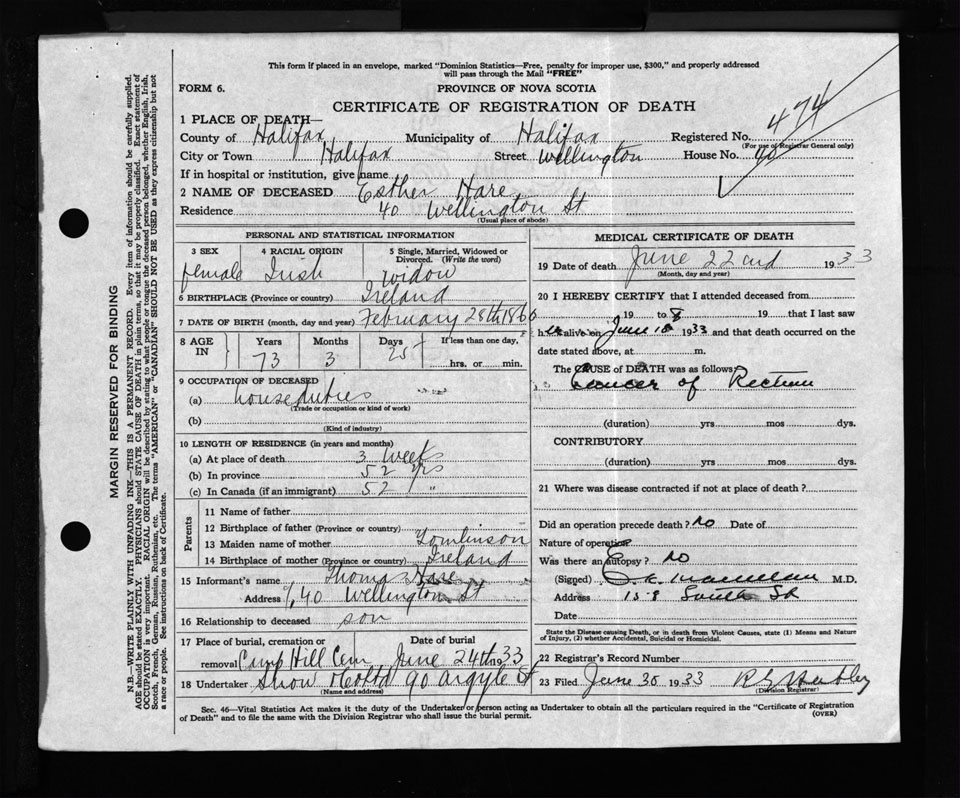 This form if placed in an envelope, marked "Dominion Statistics—Free, penalty for improper use, $300," and properly addressed
will pass through the Mail "FREE"
FORM 6.
PROVINCE OF NOVA SCOTIA
474
CERTIFICATE OF REGISTRATION OF DEATH
1 PLACE OF DEATH—
County of Halifax Municipality of Halifax Registered No.
(For use of Registrar General only)
City or Town Halifax Street Wellington House No. 40
If in hospital or institution, give name
2 NAME OF DECEASED Esther Hare
Residence 40 Wellington St
(Usual place of abode)
PERSONAL AND STATISTICAL INFORMATION
3 SEX 4 RACIAL ORIGIN 5 Single, Married, Widowed or
Divorced. (Write the word)
female Irish widow
6 BIRTHPLACE (Province or country) Ireland
7 DATE OF BIRTH (month, day and year) February 28th 1860
8 AGE IN Years Months Days If less than one day,
73 3 25 hrs. or min.
9 OCCUPATION OF DECEASED
(a) house duties
(Trade or occupation or kind of work)
(b)
(Kind of industry)
10 LENGTH OF RESIDENCE (in years and months)
(a) At place of death 3 Weeks
(b) In province 52 yrs
(c) In Canada (if an immigrant) 52 "
Parents
11 Name of father
12 Birthplace of father (Province or country)
13 Maiden name of mother Tomlinson
14 Birthplace of mother (Province or country) Ireland
15 Informant's name Thomas Hare
Address 40 Wellington St
16 Relationship to deceased son
17 Place of burial, cremation or Date of burial
removal Camp Hill Cem June 24th 1933
18 Undertaker Snow & Co Ltd 90 Argyle St
(Name and address)
MEDICAL CERTIFICATE OF DEATH
19 Date of death June 22nd 1933
(Month, day and year)
20 I HEREBY CERTIFY that I attended deceased from
19 to 19 that I last saw
her alive on June 18 1933 and that death occurred on the
date stated above, at m.
The CAUSE of DEATH was as follows:
Cancer of Rectum
(duration) yrs mos dys.
CONTRIBUTORY
(duration) yrs. mos. dys.
21 Where was disease contracted if not at place of death?
Did an operation precede death? no Date of
Nature of operation
Was there an autopsy? no
(Signed) M.D.
Address 158 South St
Date
State the Disease causing Death, or in death from Violent Causes, state (1) Means and Nature
of Injury, (2) whether Accidental, Suicidal or Homicidal.
22 Registrar's Record Number
23 Filed June 30 1933
(Division Registrar)
Sec. 46—Vital Statistics Act makes it the duty of the Undertaker or person acting as Undertaker to obtain all the particulars required in the "Certificate of Registration
of Death" and to file the same with the Division Registrar who shall issue the burial permit.
(OVER)
MARGIN RESERVED FOR BINDING
N.B.—WRITE PLAINLY WITH UNFADING INK—THIS IS A PERMANENT RECORD. Every item of information should be carefully supplied.
AGE should be stated EXACTLY. PHYSICIANS should STATE CAUSE OF DEATH in plain terms, so that it may be properly classified. Exact statement of
OCCUPATION is very important. RACIAL ORIGIN will be described by stating to what people or tongue the deceased person belonged, whether English, Irish,
Scotch, French, German, Russian, Ruthenian, etc. The terms "AMERICAN" or "CANADIAN" SHOULD NOT BE USED as they express citizenship but not
a race or people. See instructions on back of Certificate.